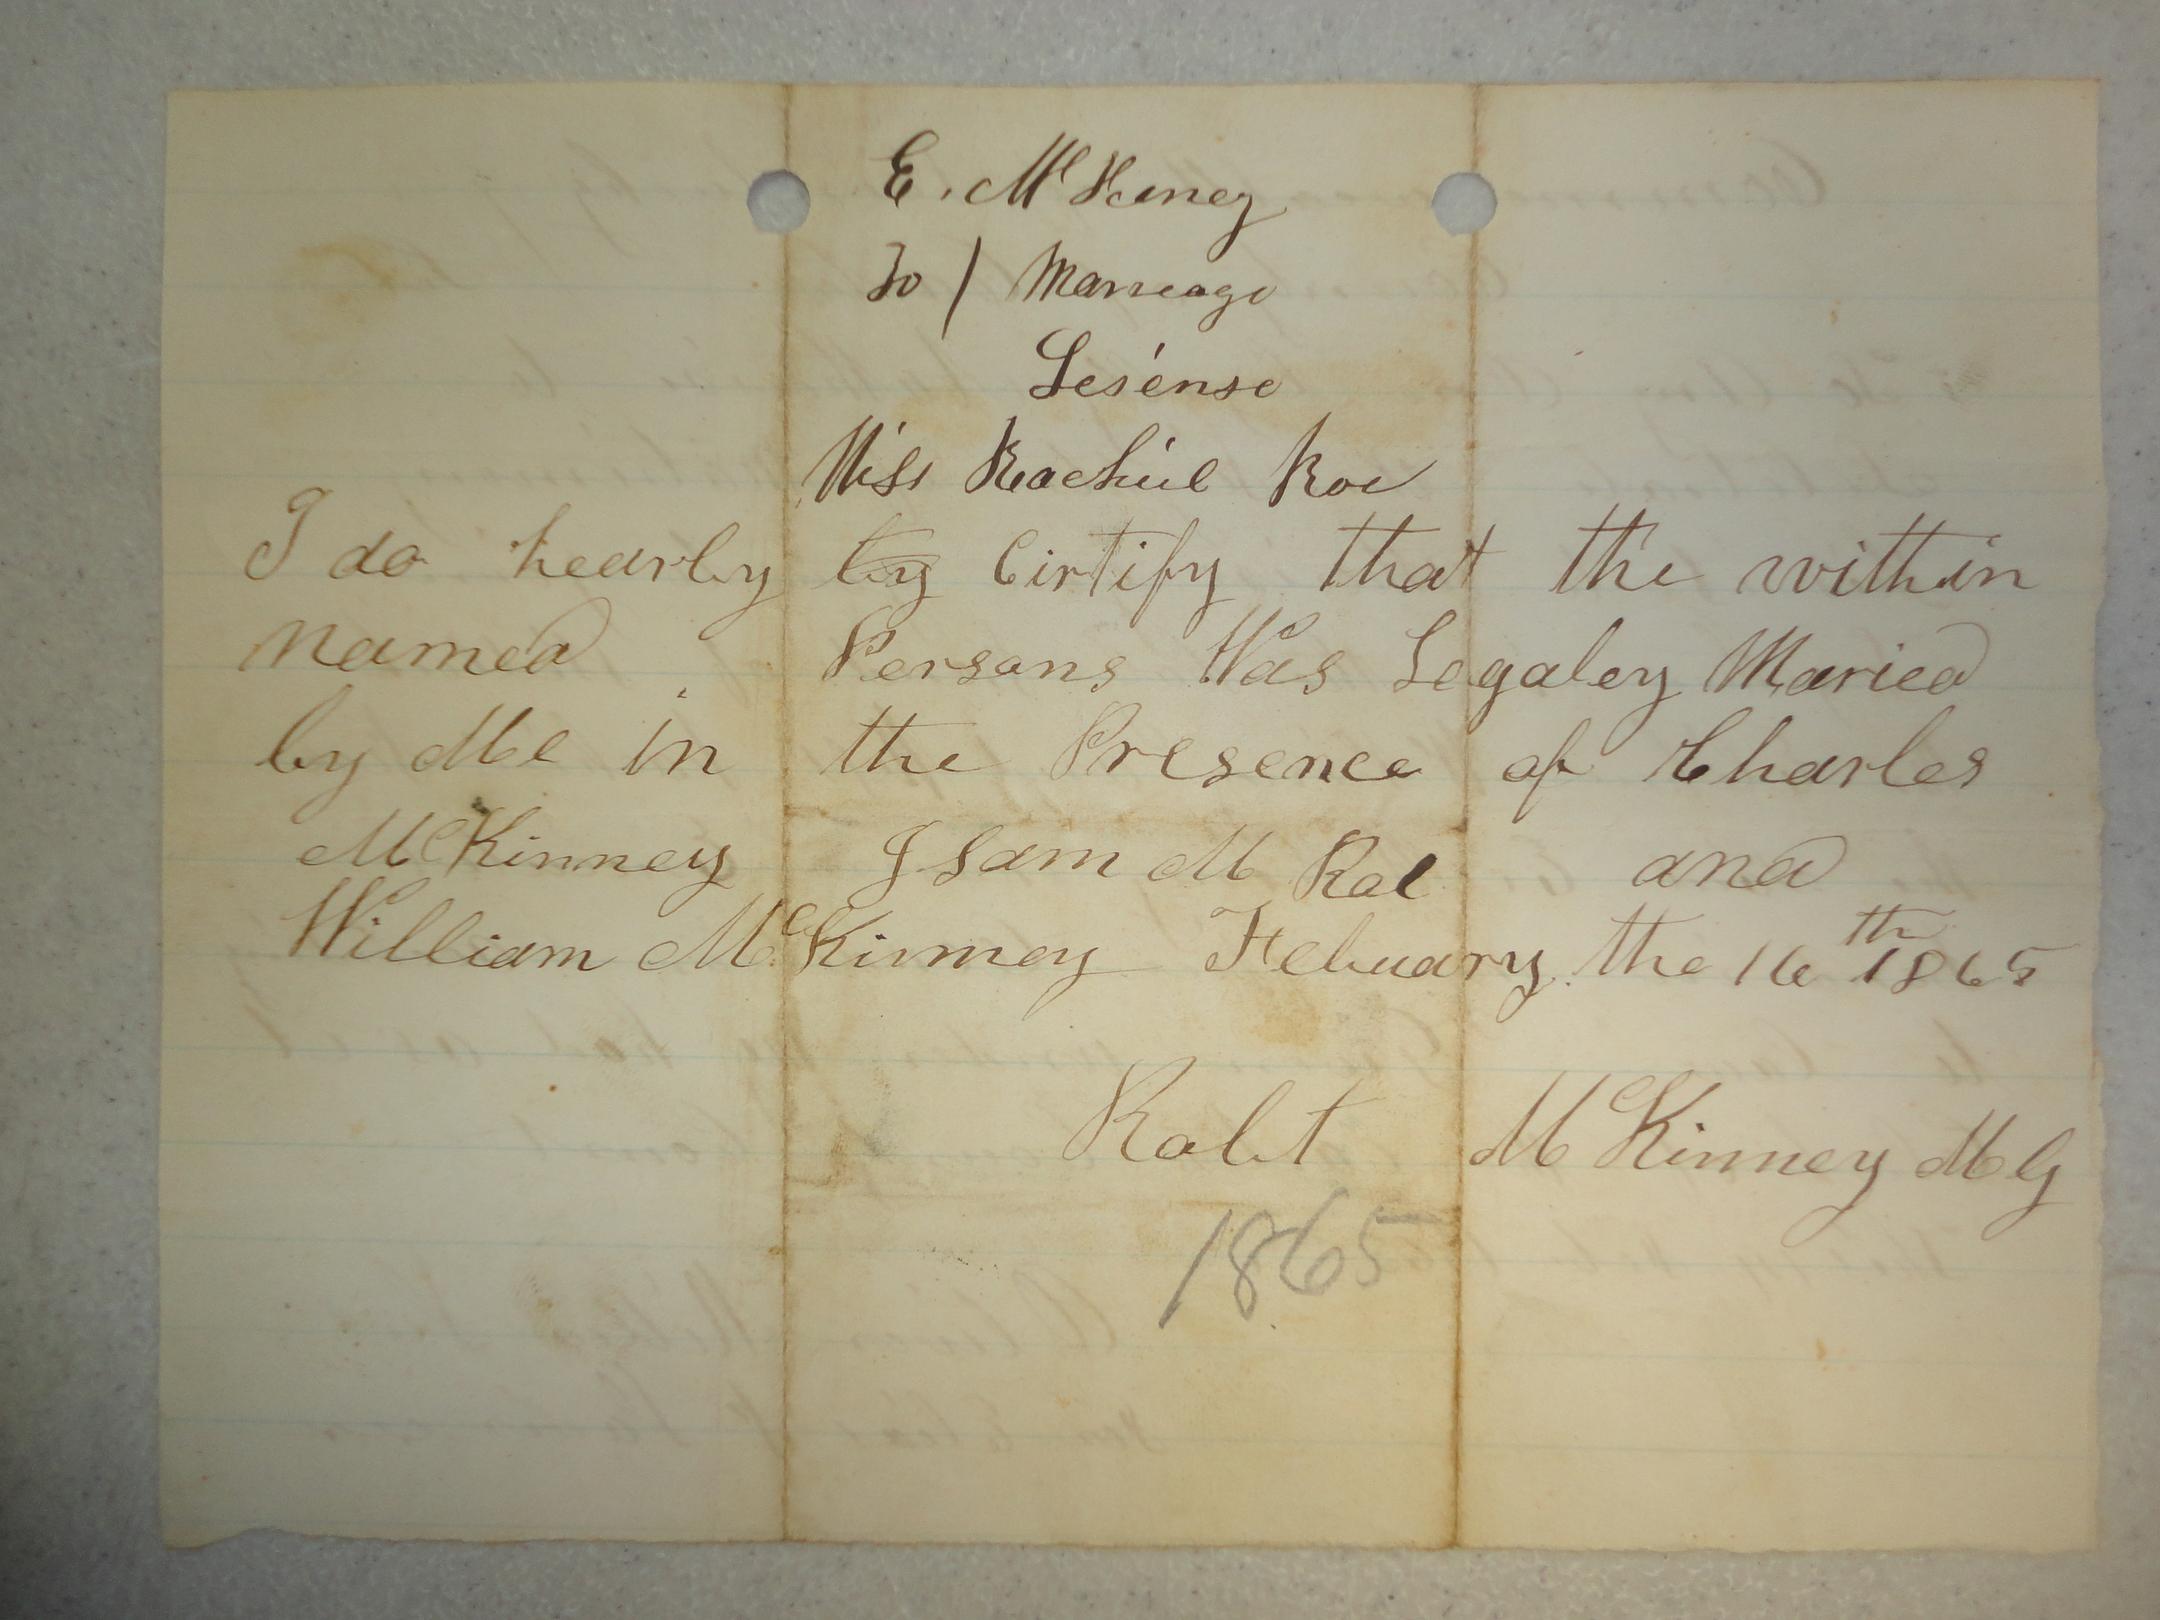 E. McKiney
To / Marreage
Lesense
Miss Rachiel Roe
I do hearby by Certify that the within
Named Persons Was Legaley Maried
by Me in the Presence of Charles
McKinney Isam M Roe and
William McKinney Febuary the 16th 1865
Robt McKinney MG
1865